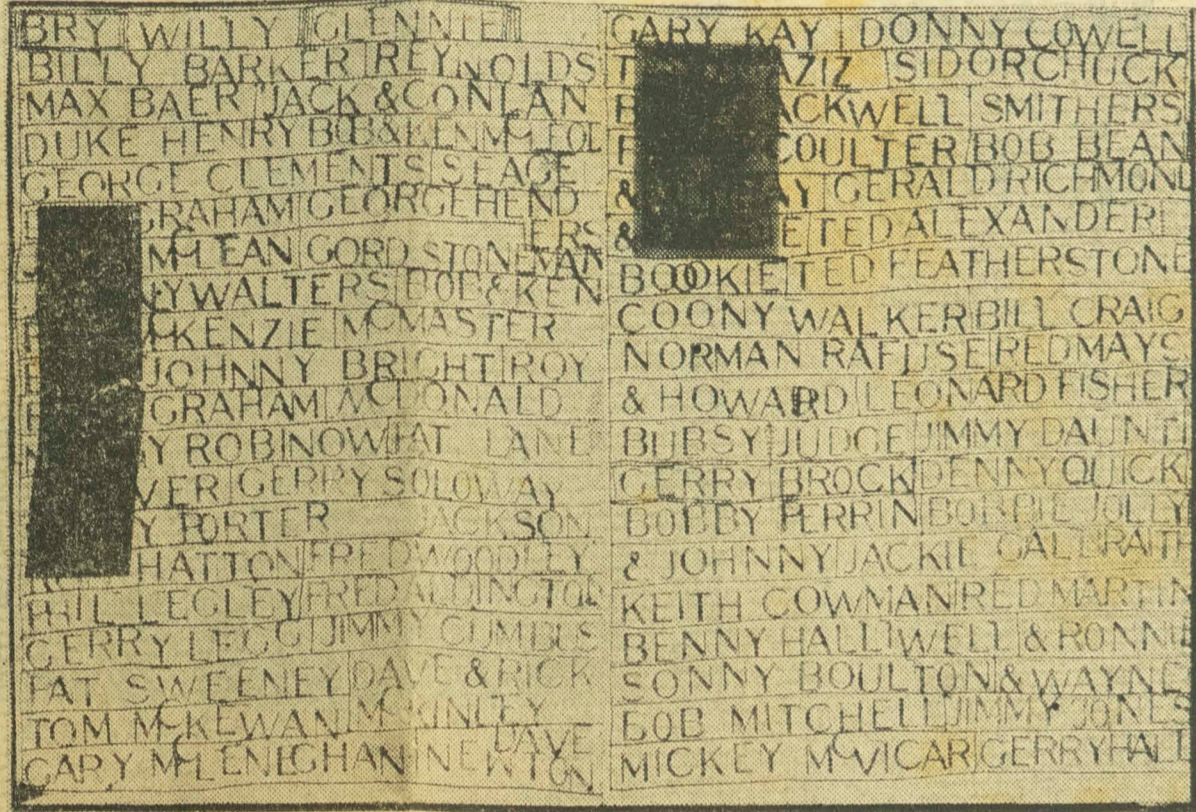 BRY WILLY GLENNIE
BILLY BARKER REYNOLDS
MAX BAER JACK & CONLAN
DUKE HENRY BOB & KEN McLEOD
GEORGE CLEMENTS SEAGE
GRAHAM GEORGE HEND
ERS
McLEAN GORD STONEMAN
WALTERS BOB & KEN
McKENZIE McMASTER
JOHNNY BRIGHT ROY
GRAHAM McDONALD
ROBINOW PAT LANE
GERRY SOLOWAY
PORTER JACKSON
HATTON FRED WOODLEY
PHIL LEGLEY FRED ALDINGTON
GERRY LEGG JIMMY CUMBUS
PAT SWEENEY DAVE & RICK
TOM McKEWAN McKINLEY
DAVE
GARY McLENEGHAN NEWTON
GARY KAY DONNY COWELL
AZIZ SIDORCHUCK
ACKWELL SMITHERS
COULTER BOB BEAN
& GERALD RICHMOND
& TED ALEXANDER
BOOKIE TED FEATHERSTONE
COONY WALKER BILL CRAIG
NORMAN RAFUSE RED MAYS
& HOWARD LEONARD FISHER
BUBSY JUDGE JIMMY DAUNT
GERRY BROCK DENNY QUICK
BOBBY PERRIN BOBBIE JOLLY
& JOHNNY JACKIE GALBRAITH
KEITH COWMAN RED MARTIN
BENNY HALLIWELL & RONNIE
SONNY BOULTON & WAYNE
BOB MITCHELL JIMMY JONES
MICKEY McVICAR GERRY HALL